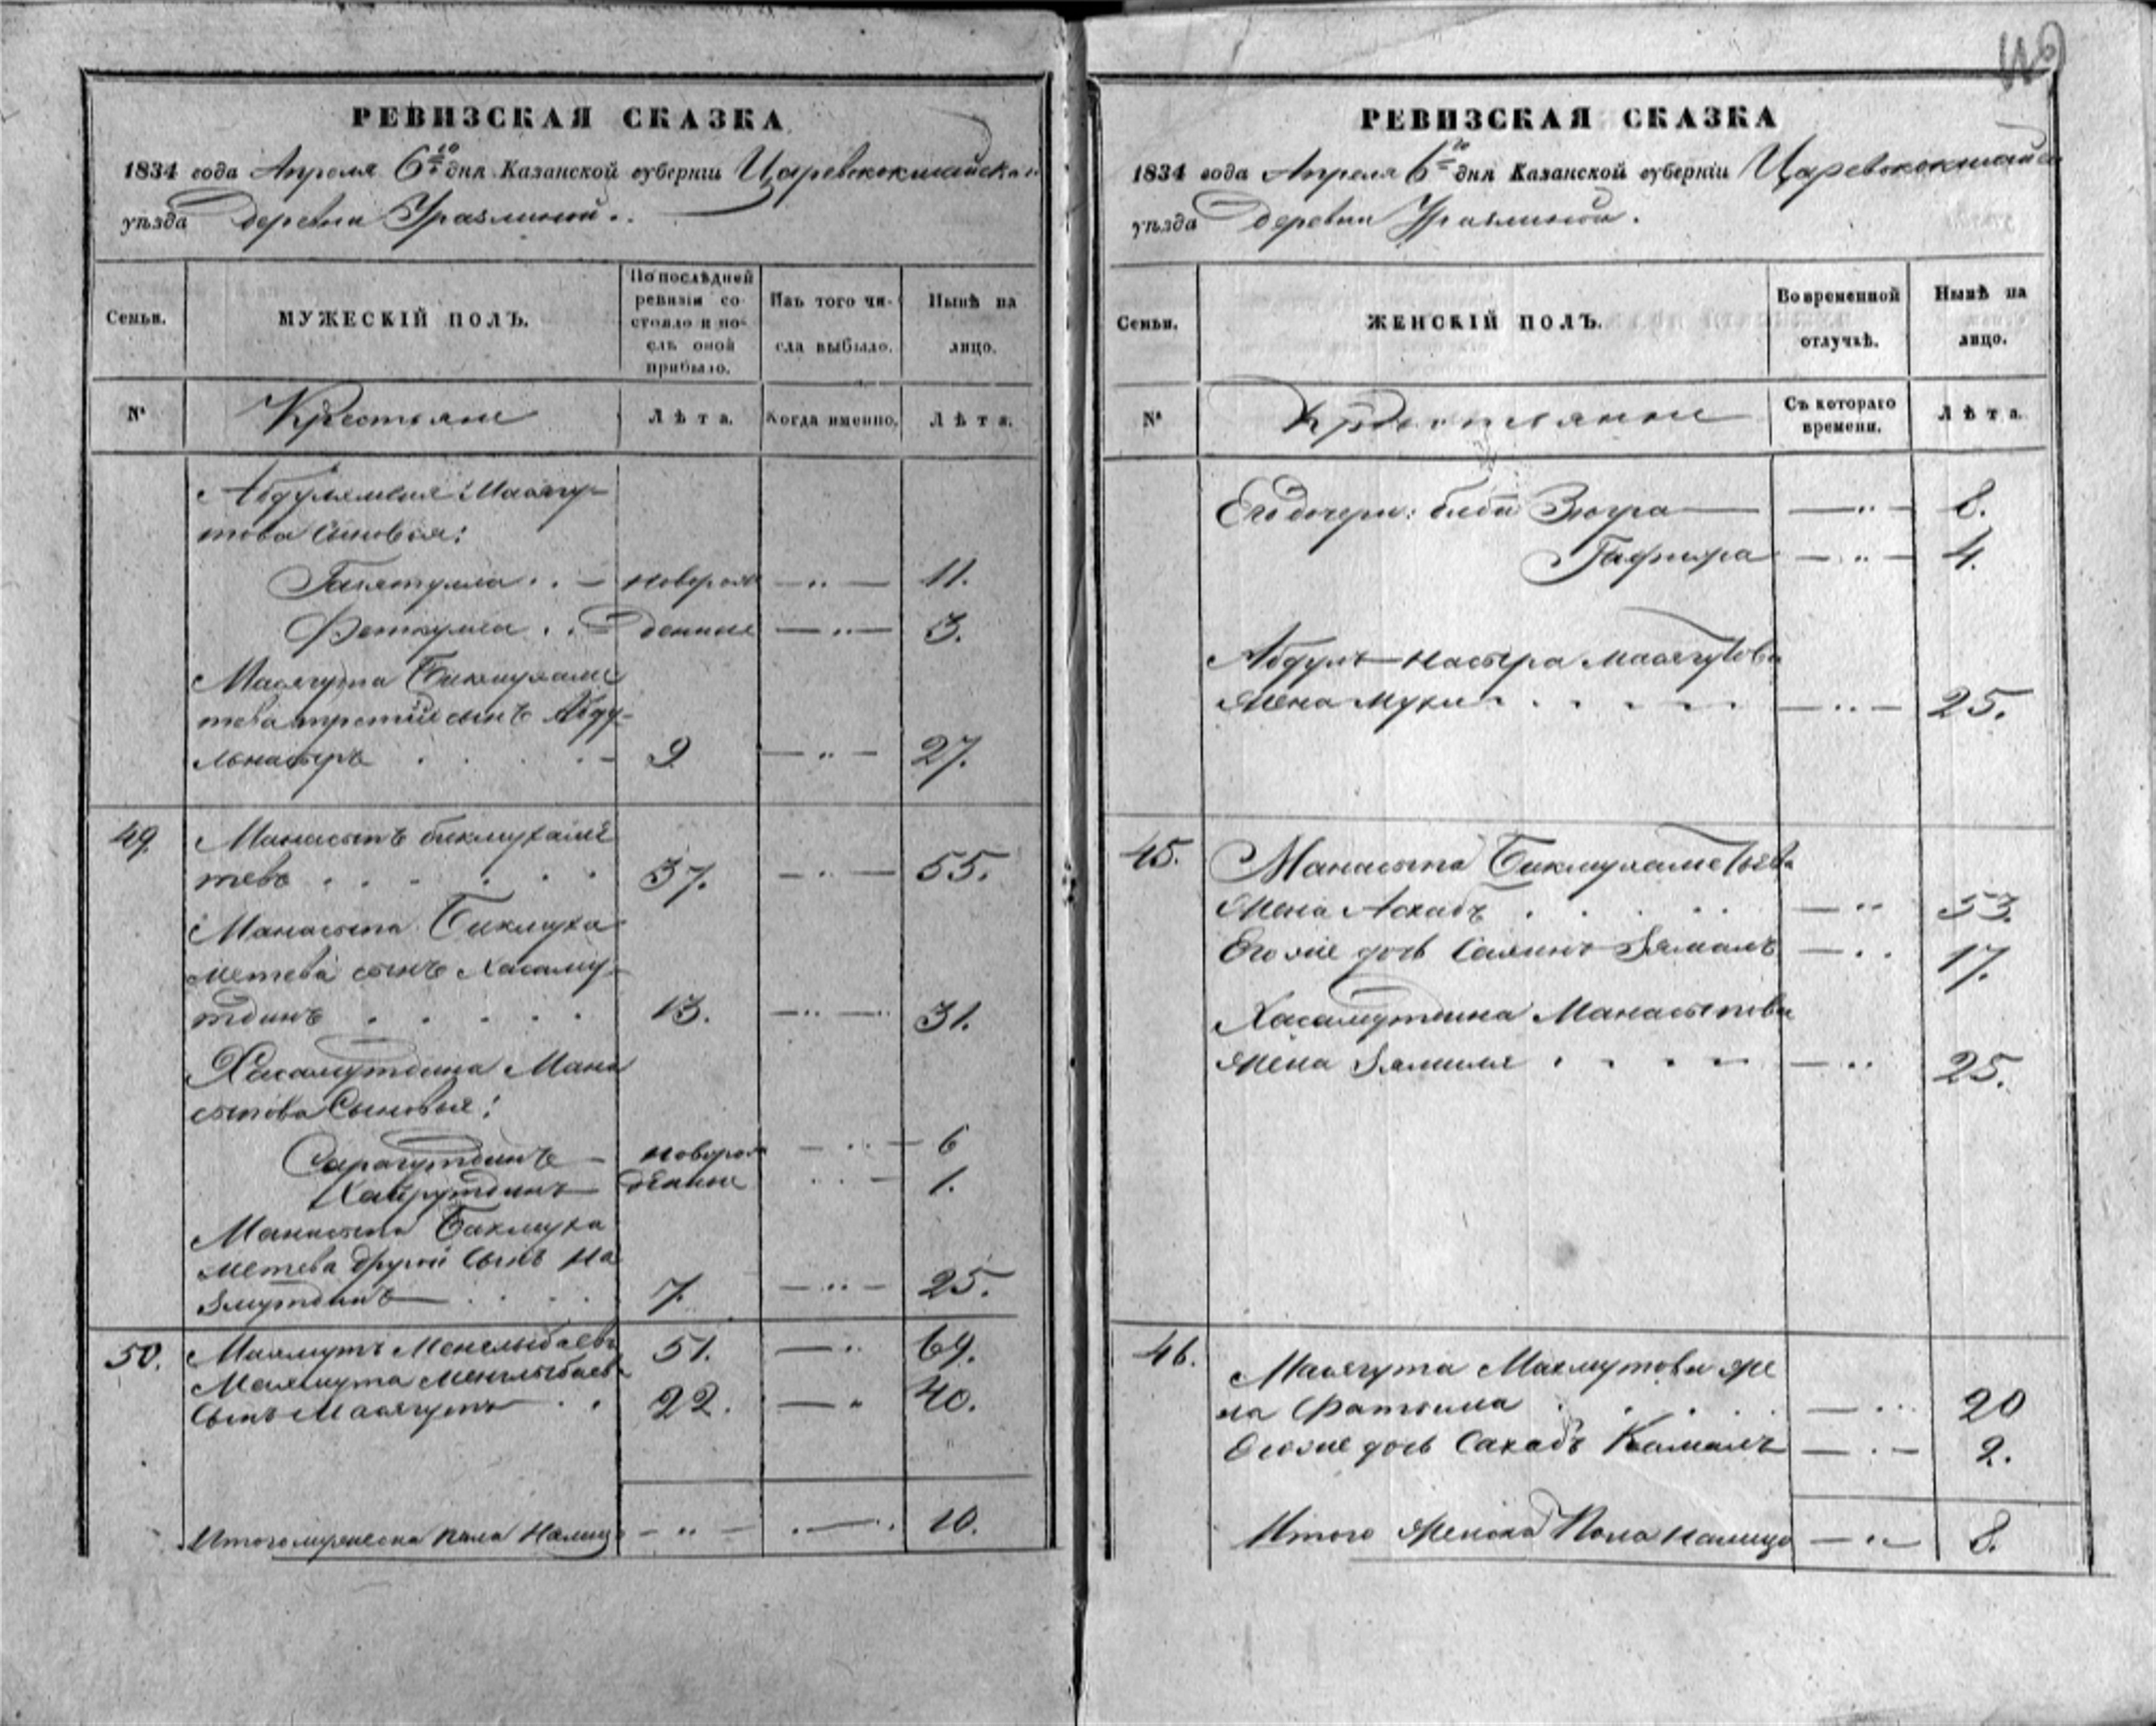 РЕВИЗСКАЯ СКАЗКА
1834 года Апреля 6го дня Казанской губерніи Царевококшайскаго
уѣзда деревни Уразлиной.
Семьи.
МУЖЕСКІЙ ПОЛЪ.
По послѣдней
ревизіи со-
стояло и по-
слѣ оной
прибыло.
Изъ того чи-
сла выбыло.
Нынѣ на
лицо.
№
Крестьяне
Лѣта.
Когда именно.
Лѣта.
Абдулзямиля Масягу-
това сыновья:
Гаятулла новорож 11.
Феткулла денные 3.
Масягута Бикмухаме
тева третій сынъ Абду-
льнасыръ 9 27.
49. Манасыпъ бикмухаме
тевъ 37. 55.
Манасыпа Бикмуха
метева сынъ Хасаму-
тдинъ 13. 31.
Хасамутдина Мана
сыпова сыновья:
Сарагутдинъ новорож 6
Хайрутдинъ денные 1.
Манасыпа Бикмуха
метева другой сынъ На
змутдинъ 7. 25.
50. Махмутъ Менглыбаевъ 51. 69.
Махмута Менглыбаева
сынъ Масягутъ 22. 40.
Итого мужеска пола налицо 10.
РЕВИЗСКАЯ СКАЗКА
1834 года Апреля 6го дня Казанской губерніи Царевококшайска
уѣзда деревни Уразлиной.
Семьи.
ЖЕНСКІЙ ПОЛЪ.
Во временной
отлучкѣ.
Нынѣ на
лицо.
№
Крестьянки
Съ котораго
времени.
Лѣта.
Его дочери: биби Зюгра 8.
Гафира 4.
Абдулъ-насыра Масягутова
жена Мухи 25.
45. Манасыпа Бикмухаметева
жена Асхабъ 53.
Его же дочь Саликъ Зямалъ 17.
Хасамутдина Манасыпова
жена Зямиля 25.
46. Масягута Махмутова же
на Фатыма 20
Его же дочь Сахабъ Камалъ 2.
Итого женска пола налицо 8.